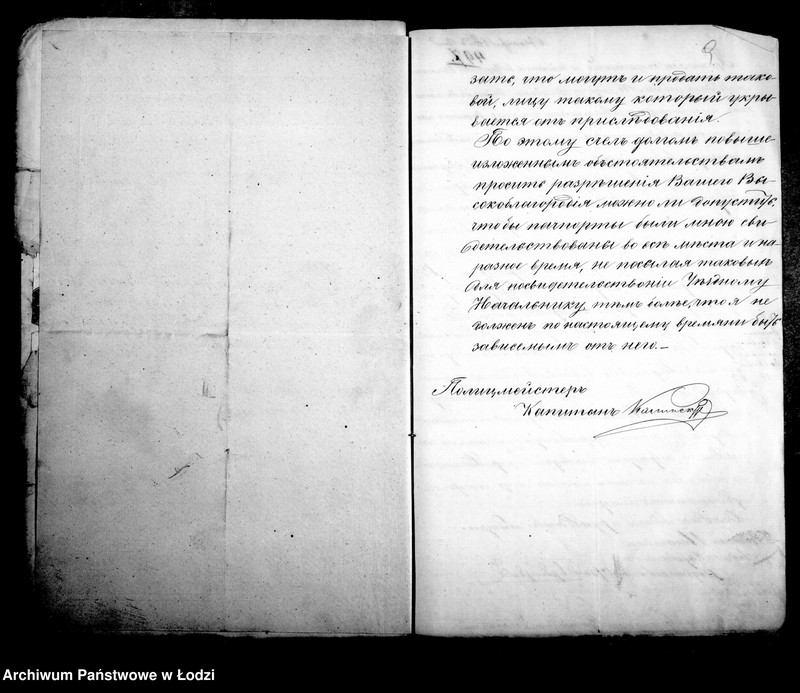 9
зато, что могутъ и продать тако-
вой, лицу такому который укры-
вается отъ прислѣдованія.
По этому счелъ долгомъ повыше-
изложеннымъ обстоятельствамъ
просить разрѣшенія Вашего Вы-
сокоблагородія можно ли допустить,
чтобы пачпорты были мною сви-
дѣтельствованы во всѣ мѣста и на
разное время, не посылая таковыхъ
для посвидѣтельствоніи Уѣздному
Начальнику, тѣмъ болѣе, что я не
долженъ по настоящему времяни быть
зависемымъ отъ него. —
Полицмейстеръ
Капитанъ
Archiwum Państwowe w Łodzi